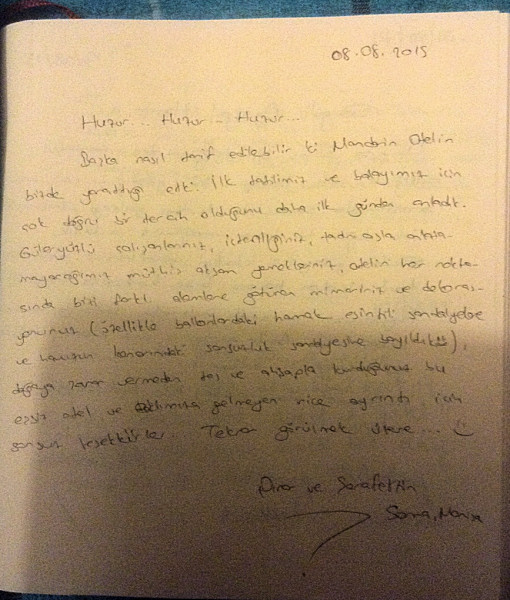 08.08.2015
Huzur... Huzur... Huzur...
Başka nasıl tarif edilebilir ki Mandarin Otelin
bizde yarattığı etki. İlk tatilimiz ve balayımız için
çok doğru bir tercih olduğunu daha ilk günden anladık.
Güleryüzlü çalışanlarınız, içtenliğiniz, tadını asla unuta-
mayacağımız müthiş akşam yemekleriniz, otelin her nokta-
sında bizi farklı alemlere götüren mimariniz ve dekoras-
yonunuz (özellikle balkonlardaki hamak esintili sandalyelere
ve havuzun kenarındaki sonsuzluk sandalyesine bayıldık),
doğaya zarar vermeden taş ve ahşapla kurduğunuz bu
eşsiz otel ve aklımıza gelmeyen nice ayrıntı için
sonsuz teşekkürler. Tekrar görülmek üzere...
ve Şerafettin
Soma, Manisa